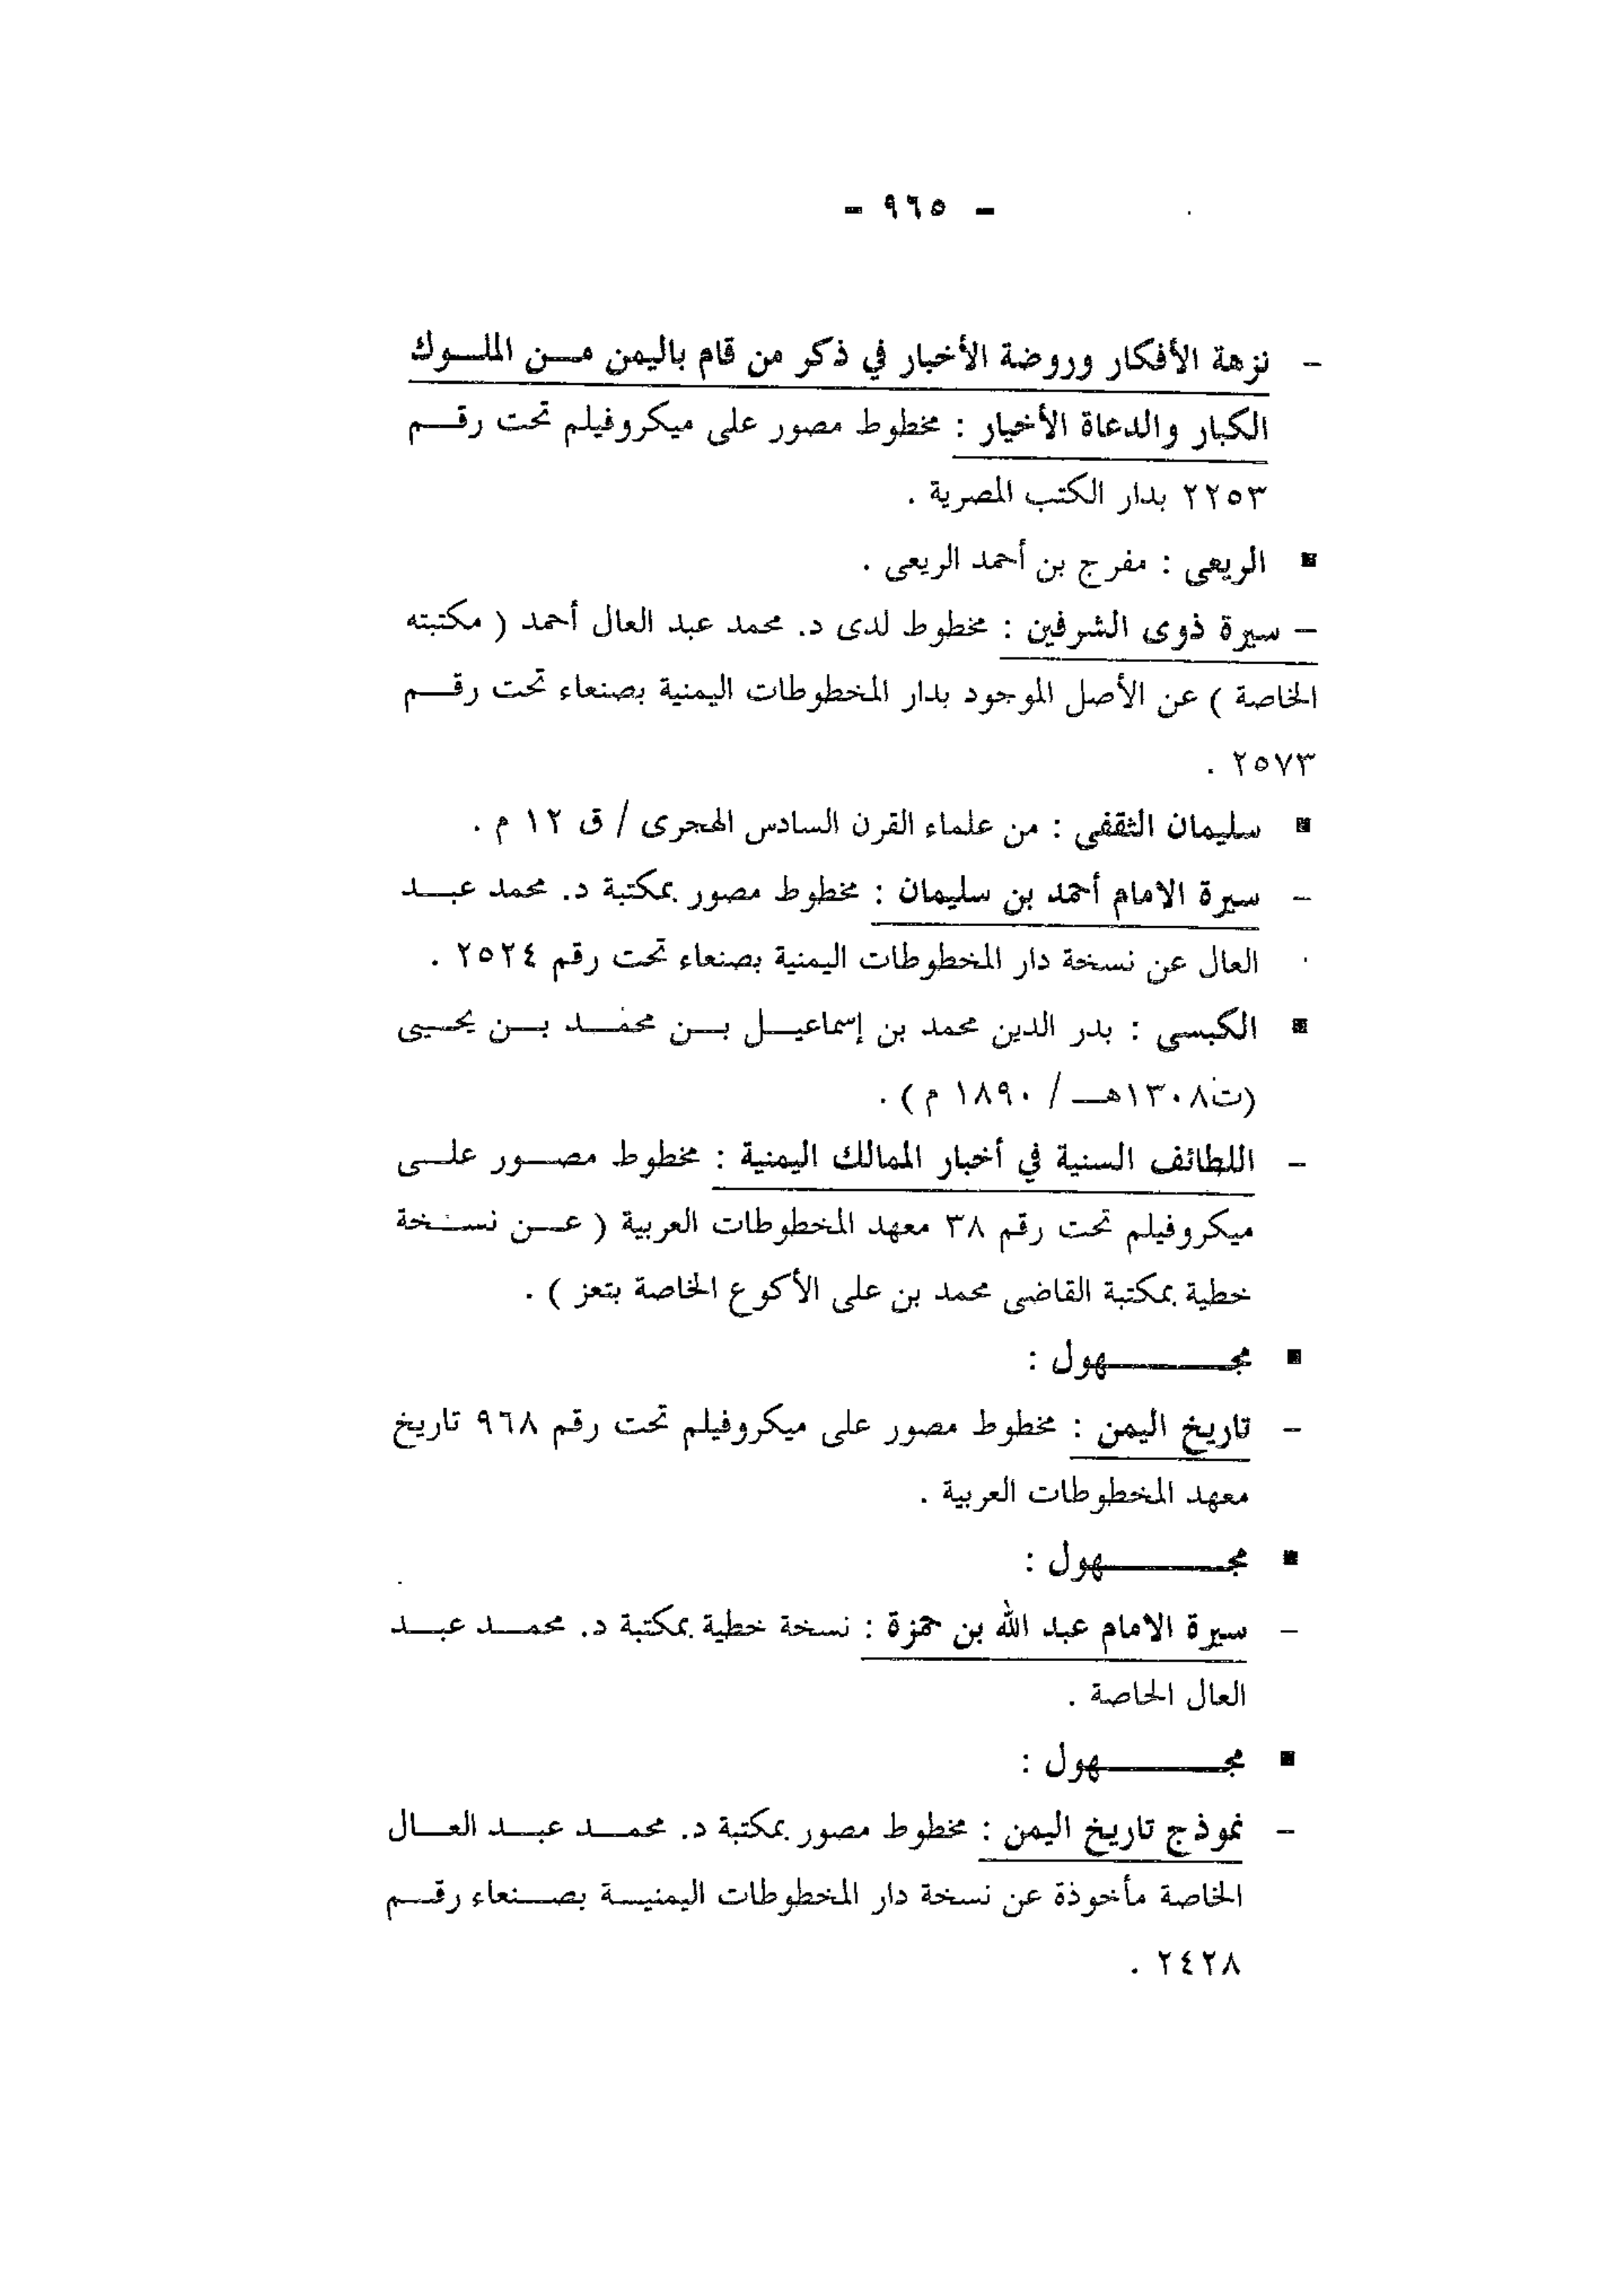 - ٩٦٥ -
- نزهة الأفكار وروضة الأخبار في ذكر من قام باليمن من الملوك
الكبار والدعاة الأخيار : مخطوط مصور على ميكروفيلم تحت رقم
٢٢٥٣ بدار الكتب المصرية .
■ الريعى : مفرج بن أحمد الريعى .
- سيرة ذوى الشرفين : مخطوط لدى د. محمد عبد العال أحمد ( مكتبته
الخاصة ) عن الأصل الموجود بدار المخطوطات اليمنية بصنعاء تحت رقم
٢٥٧٣ .
■ سليمان الثقفى : من علماء القرن السادس الهجرى / ق ١٢ م .
- سيرة الامام أحمد بن سليمان : مخطوط مصور بمكتبة د. محمد عبد
العال عن نسخة دار المخطوطات اليمنية بصنعاء تحت رقم ٢٥٢٤ .
■ الكبسى : بدر الدين محمد بن إسماعيل بن محمد بن يحيى
(ت١٣٠٨هـ / ١٨٩٠ م ) .
- اللطائف السنية في أخبار الممالك اليمنية : مخطوط مصور على
ميكروفيلم تحت رقم ٣٨ معهد المخطوطات العربية ( عن نسخة
خطية بمكتبة القاضى محمد بن على الأكوع الخاصة بتعز ) .
■ مجهول :
- تاريخ اليمن : مخطوط مصور على ميكروفيلم تحت رقم ٩٦٨ تاريخ
معهد المخطوطات العربية .
■ مجهول :
- سيرة الامام عبد الله بن حمزة : نسخة خطية بمكتبة د. محمد عبد
العال الخاصة .
■ مجهول :
- نموذج تاريخ اليمن : مخطوط مصور بمكتبة د. محمد عبد العال
الخاصة مأخوذة عن نسخة دار المخطوطات اليمنية بصنعاء رقم
٢٤٢٨ .